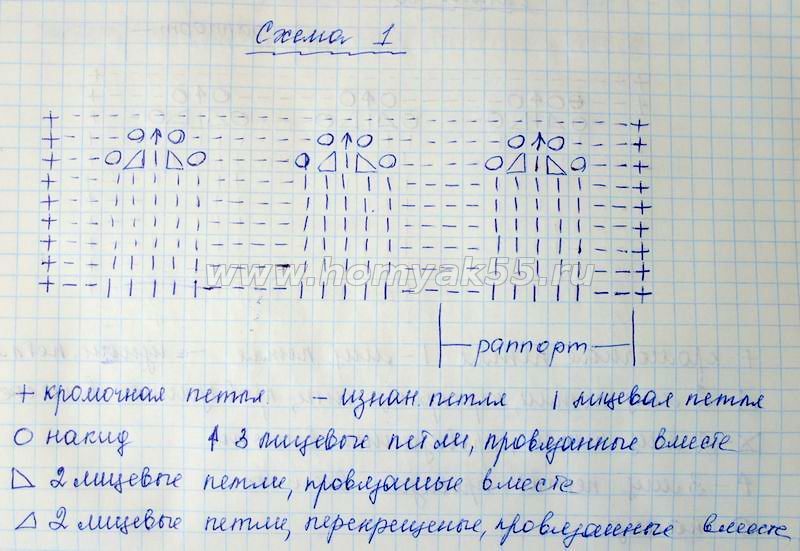 Схема 1
www.homyak55.ru
раппорт
+ кромочная петля – изнан петля | лицевая петля
О накид ↑ 3 лицевые петли, провязанные вместе
◺ 2 лицевые петли, провязаные вместе
◿ 2 лицевые петли, перекрещеные, провязанные вместе